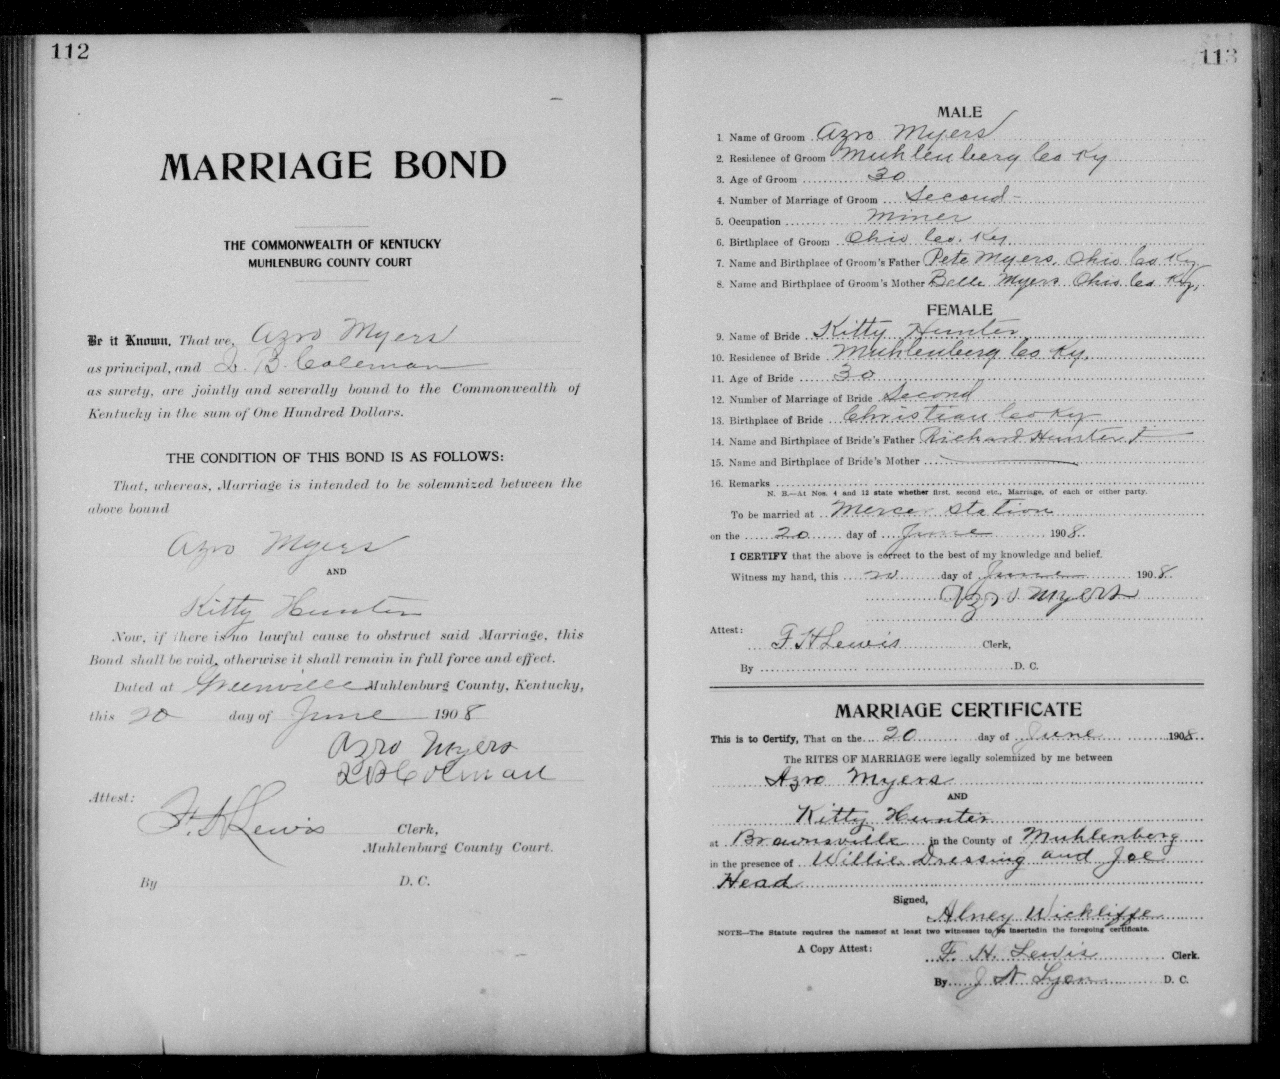 112
MARRIAGE BOND
THE COMMONWEALTH OF KENTUCKY
MUHLENBURG COUNTY COURT
Be it Known, That we, Azro Myers
as principal, and B. Coleman
as surety, are jointly and severally bound to the Commonwealth of
Kentucky in the sum of One Hundred Dollars.
THE CONDITION OF THIS BOND IS AS FOLLOWS:
That, whereas, Marriage is intended to be solemnized between the
above bound
Azro Myers
AND
Kitty Hunter
Now, if there is no lawful cause to obstruct said Marriage, this
Bond shall be void, otherwise it shall remain in full force and effect.
Dated at Greenville Muhlenburg County, Kentucky,
this 20 day of June 1908
Azro Myers
B Coleman
Attest:
F. H Lewis Clerk,
Muhlenburg County Court.
By D. C.
113
MALE
1. Name of Groom Azro Myers
2. Residence of Groom Muhlenberg Co Ky
3. Age of Groom 30
4. Number of Marriage of Groom Second
5. Occupation Miner
6. Birthplace of Groom Ohio Co. Ky
7. Name and Birthplace of Groom's Father Pete Myers, Ohio Co Ky
8. Name and Birthplace of Groom's Mother Belle Myers Ohio Co Ky,
FEMALE
9. Name of Bride Kitty Hunter
10. Residence of Bride Muhlenberg Co Ky,
11. Age of Bride 30
12. Number of Marriage of Bride Second
13. Birthplace of Bride Christian Co Ky
14. Name and Birthplace of Bride's Father Richard Hunter
15. Name and Birthplace of Bride's Mother
16. Remarks
N. B.—At Nos. 4 and 12 state whether first, second etc., Marriage, of each or either party.
To be married at Mercer Station
on the 20 day of June 1908.
I CERTIFY that the above is correct to the best of my knowledge and belief.
Witness my hand, this 20 day of June 1908
Azro Myers
Attest:
F H Lewis Clerk,
By D. C.
MARRIAGE CERTIFICATE
This is to Certify, That on the 20 day of June 1908.
The RITES OF MARRIAGE were legally solemnized by me between
Azro Myers
AND
Kitty Hunter
at Brownsville in the County of Muhlenberg
in the presence of Willie Dressing and Joe
Head
Signed,
Alney Wickliffe
NOTE—The Statute requires the namesof at least two witnesses to be insertedin the foregoing certificate.
A Copy Attest: F. H. Lewis Clerk.
By J N Lyon D. C.